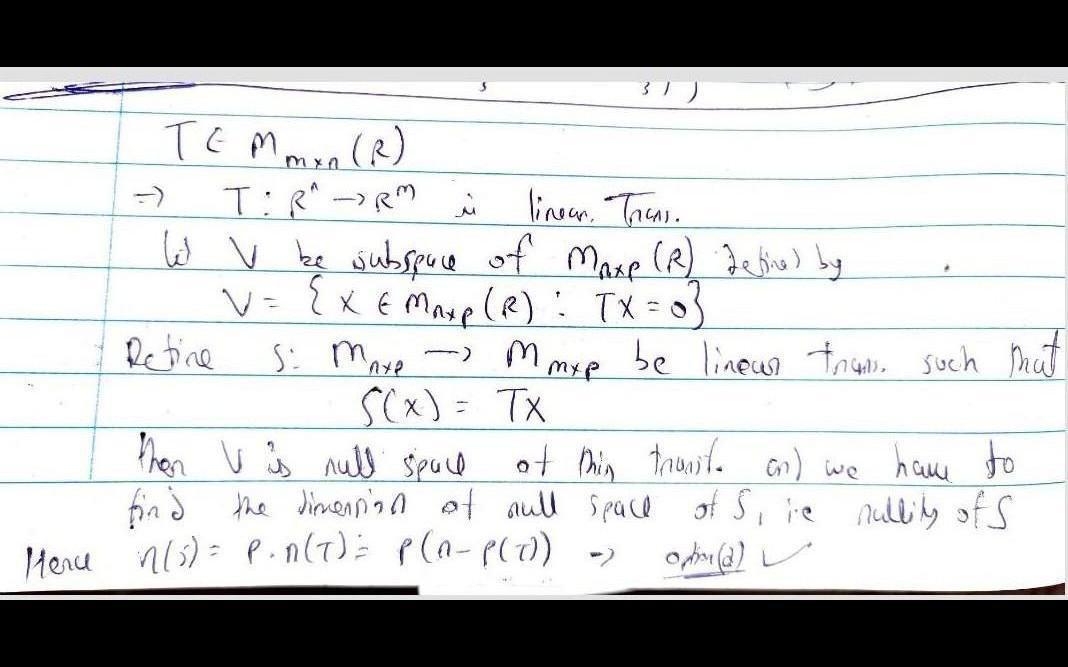 T ∈ M_{m×n}(R)
⇒ T : R^n → R^m is linear. Trans.
Let V be subspace of M_{n×p}(R) defined by
V = { X ∈ M_{n×p}(R) : TX = 0}
Define S: M_{n×p} → M_{m×p} be linear trans. such that
S(X) = TX
then V is null space of this transf. and we have to
find the dimension of null space of S, i.e nullity of S
Hence η(S) = p·η(T) = p(n-ρ(T)) ⇒ option(d) ✓